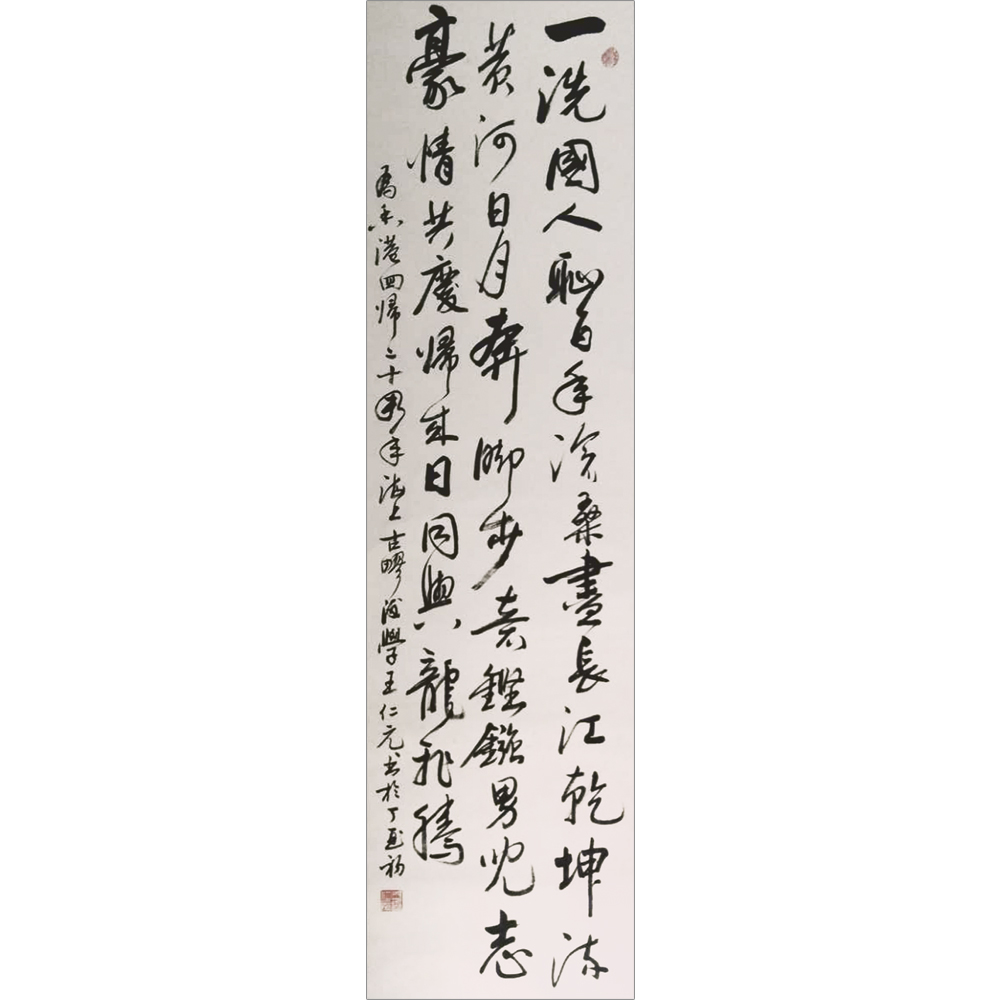 一洗國人恥百年滄桑盡長江乾坤流
黄河日月奔腳步意鏗鏘男兒志
豪情共慶歸來日同興龍飛騰
為香港回歸二十周年海上古疁後學王仁元书於丁酉初